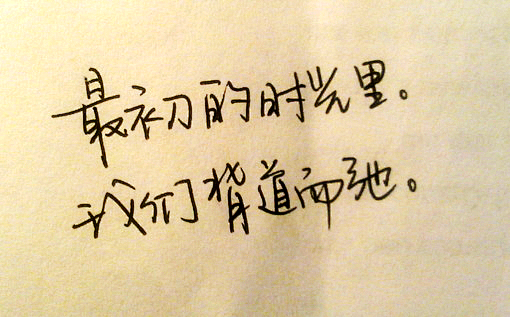 最初的时光里。
我们背道而驰。